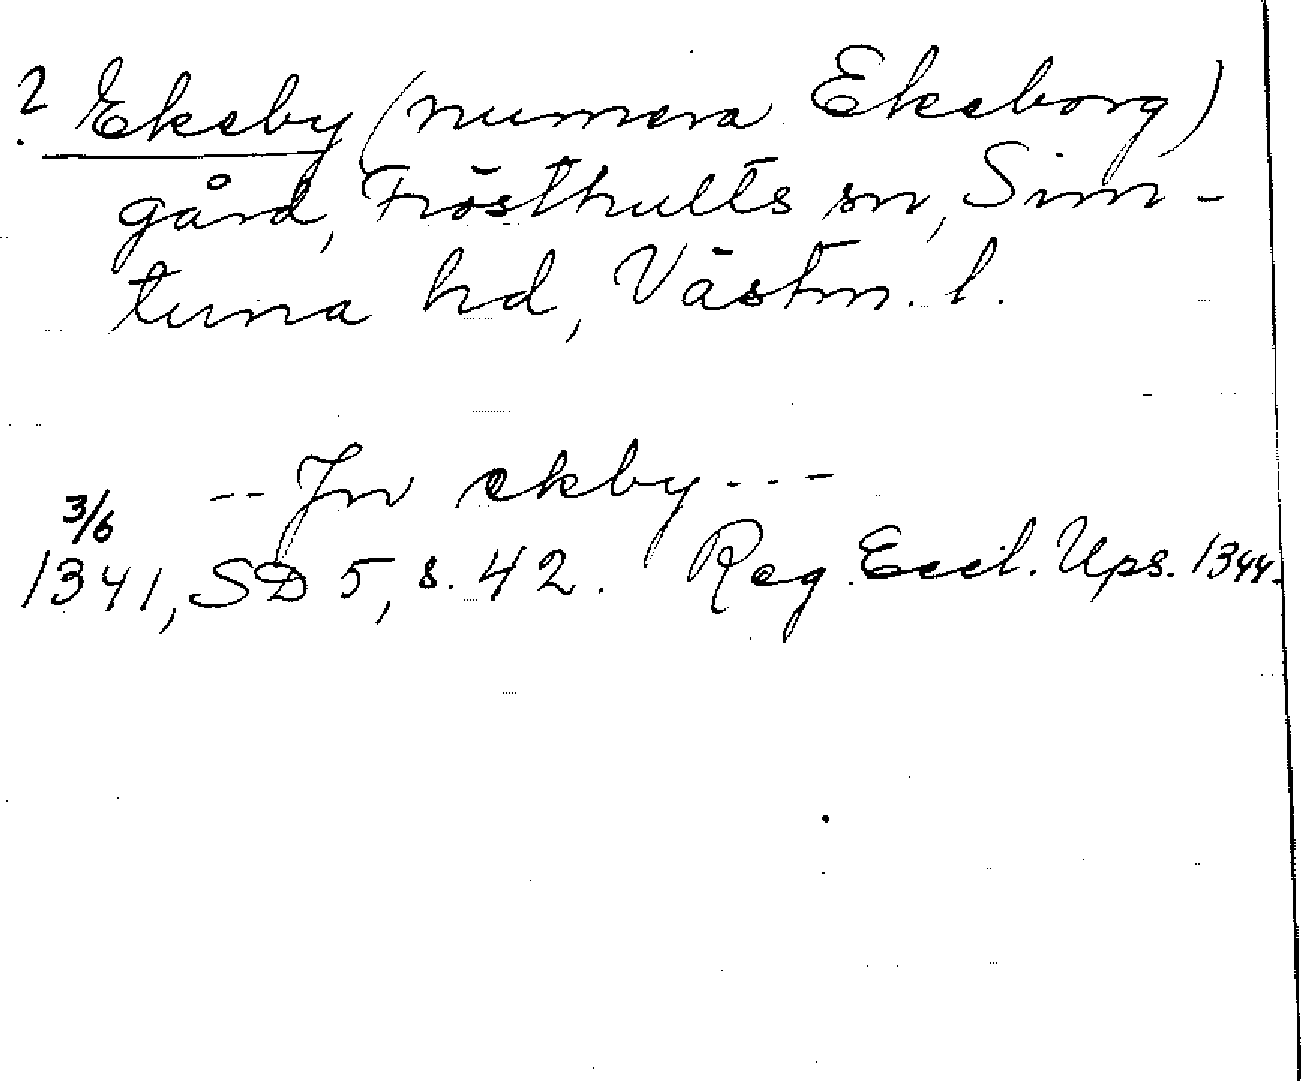 ? Ekeby (numera Ekeborg)
gård, Frösthults sn, Sim-
tuna hd, Västm. l.
-- Jn ekby ---
3/6
1341, SD 5, s. 42. Reg. Eccl. Ups. 1344.